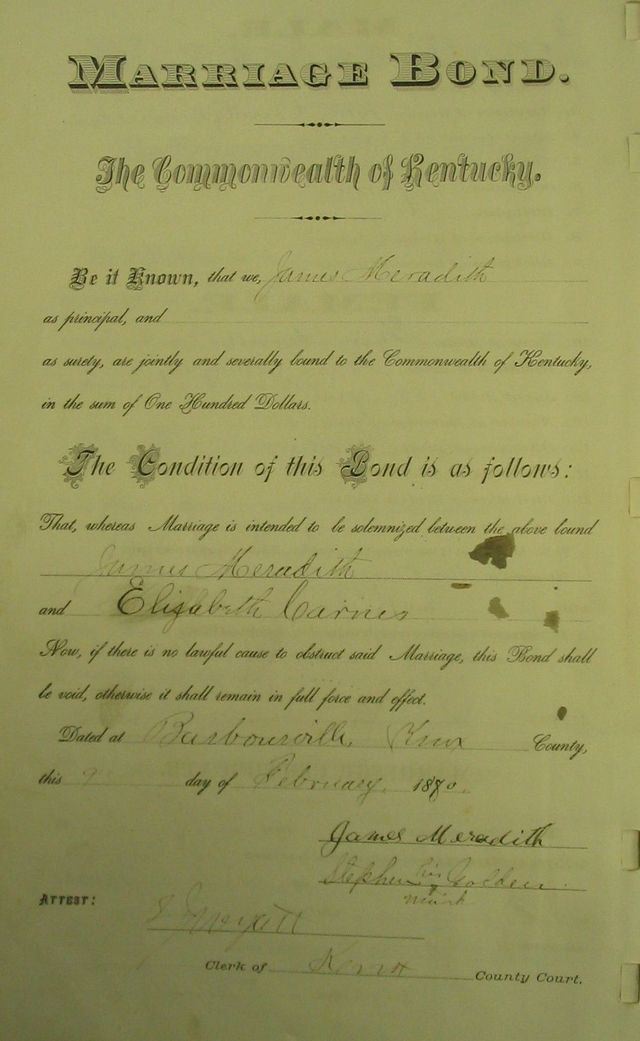 MARRIAGE BOND.
The Commonwealth of Kentucky.
Be it Known, that we, James Meradith
as principal, and
as surety, are jointly and severally bound to the Commonwealth of Kentucky,
in the sum of One Hundred Dollars.
The Condition of this Bond is as follows:
That, whereas Marriage is intended to be solemnized between the above bound
James Meradith
and Elizabeth Carnes
Now, if there is no lawful cause to obstruct said Marriage, this Bond shall
be void, otherwise it shall remain in full force and effect.
Dated at Barbourville, Knox County,
this 9 day of February, 1870.
James Meradith
Stephen his Golden
mark
ATTEST:
Wyatt
Clerk of Knox County Court.